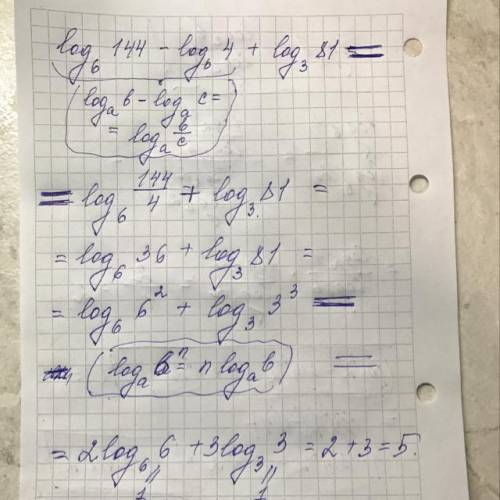 log₆ 144 - log₆ 4 + log₃ 81 =
logₐ b - logₐ c =
= logₐ b/c
= log₆ 144/4 + log₃ 81 =
= log₆ 36 + log₃ 81 =
= log₆ 6² + log₃ 3³ =
(logₐ bⁿ = n logₐ b) =
= 2log₆ 6 + 3log₃ 3 = 2 + 3 = 5.
1 1